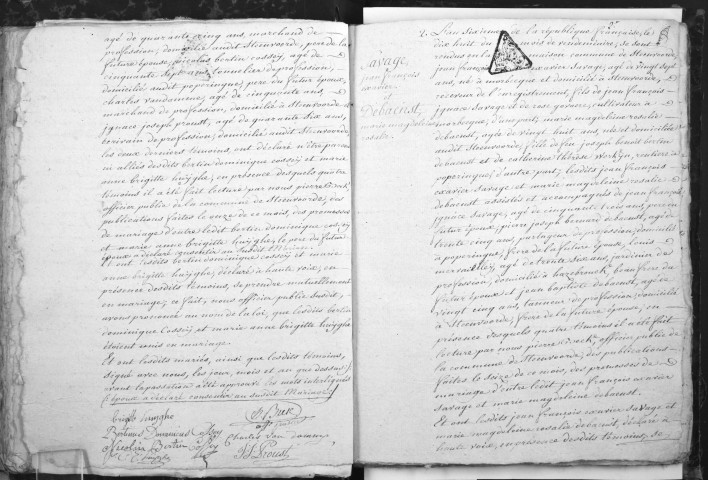 agé de quarante cinq ans, marchand de
profession, domicilié audit Steenvorde, pere de la
future épouse, nicolas bertin cossey, agé de
cinquante sept ans, tonnelier de profession,
domicilié audit poperingue, pere du futur époux,
charles vandamme, agé de cinquante ans,
marchand de profession, domicilié a Steenvorde et
ignace joseph proust, agé de quarante six ans,
écrivain de profession, domicilié audit Steenvorde,
les deux derniers témoins, ont déclaré n'être parens
ni alliés desdits bertin dominique cossey et marie
anne brigitte huÿghe, en présence desquels quatre
témoins il a été fait lecture par nous pierre
officier public de la commune de Steenvorde, des
publications faites le onze de ce mois, des promesses
de mariage d'entre ledit bertin dominique cossey
et marie anne brigitte huÿghe, le pere du futur
époux a déclaré consentir au susdit Mariage
et ont lesdits bertin dominique cossey et marie
anne brigitte huÿghe, déclaré à haute voix, en
présence desdits témoins, se prendre mutuellement
en mariage; ce fait, nous officier public susdit,
avons prononcé au nom de la loi, que lesdits bertin
dominique Cossey et marie anne brigitte huÿghe
étoient unis en mariage.
Et ont lesdits mariés, ainsi que lesdits témoins,
signé avec nous, les jour, mois et an que dessus,
avant la passation a été approuvé les mots interlignés
époux a déclaré consentir au susdit Mariage
Charles van damme
Nicolais Bertin
J. J. Proust
L'an sixieme de la république française, le
dix huit du mois de vendemiaire, se sont
rendus en la maison commune de Steenvorde,
jean françois xavier Savage, agé de vingt sept
ans, né a morbecque et domicilié a Steenvorde,
receveur de l'enregistrement, fils de jean françois
ignace Savage et de rose gevaere, cultivateur a
morbecque, d'une part; marie magdeleine rosalie
debacust, agée de vingt huit ans, née et domiciliée
audit Steenvorde, fille de feu joseph benoit bertin
debacust et de catherine thérèse Workÿn, rentiere a
poperingue, d'autre part; lesdits jean françois
xavier Savage et marie magdeleine rosalie
debacust assistés et accompagnés de jean françois
ignace Savage, agé de cinquante trois ans, pere du
futur époux, pierre joseph bernard debacust, agé de
trente cinq ans, de profession, domicilié
a poperingue, frere de la future épouse, louis
agé de trente six ans, jardinier de
profession, domicilié a hazebrouck, beau frere du
futur époux et jean baptiste debacust, agé de
vingt cinq ans, tanneur de profession, domicilié
a Steenvorde, frere de la future épouse, en
présence desquels quatre témoins il a été fait
lecture par nous pierre officier public de
la commune de Steenvorde, des publications
faites le seize de ce mois, des promesses de
mariage d'entre ledit jean françois xavier
Savage et marie magdeleine rosalie debacust.
Et ont lesdits jean françois xavier Savage et
marie magdeleine rosalie debacust, déclaré à
haute voix, en présence desdits témoins, se
Savage
jean françois
xavier
et
Debacust
marie magdeleine
rosalie